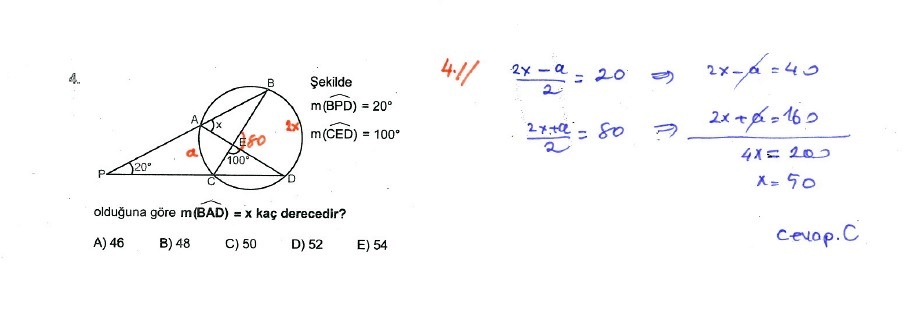 4.
Şekilde
m(BPD) = 20°
m(CED) = 100°
B
A
x
E
80
2x
a
100°
20°
P
C
D
olduğuna göre m(BAD) = x kaç derecedir?
A) 46 B) 48 C) 50 D) 52 E) 54
4.//
2x-a/2 = 20 ⇒ 2x-a = 40
2x+a/2 = 80 ⇒ 2x+a = 160
4x = 200
x = 50
cevap. C